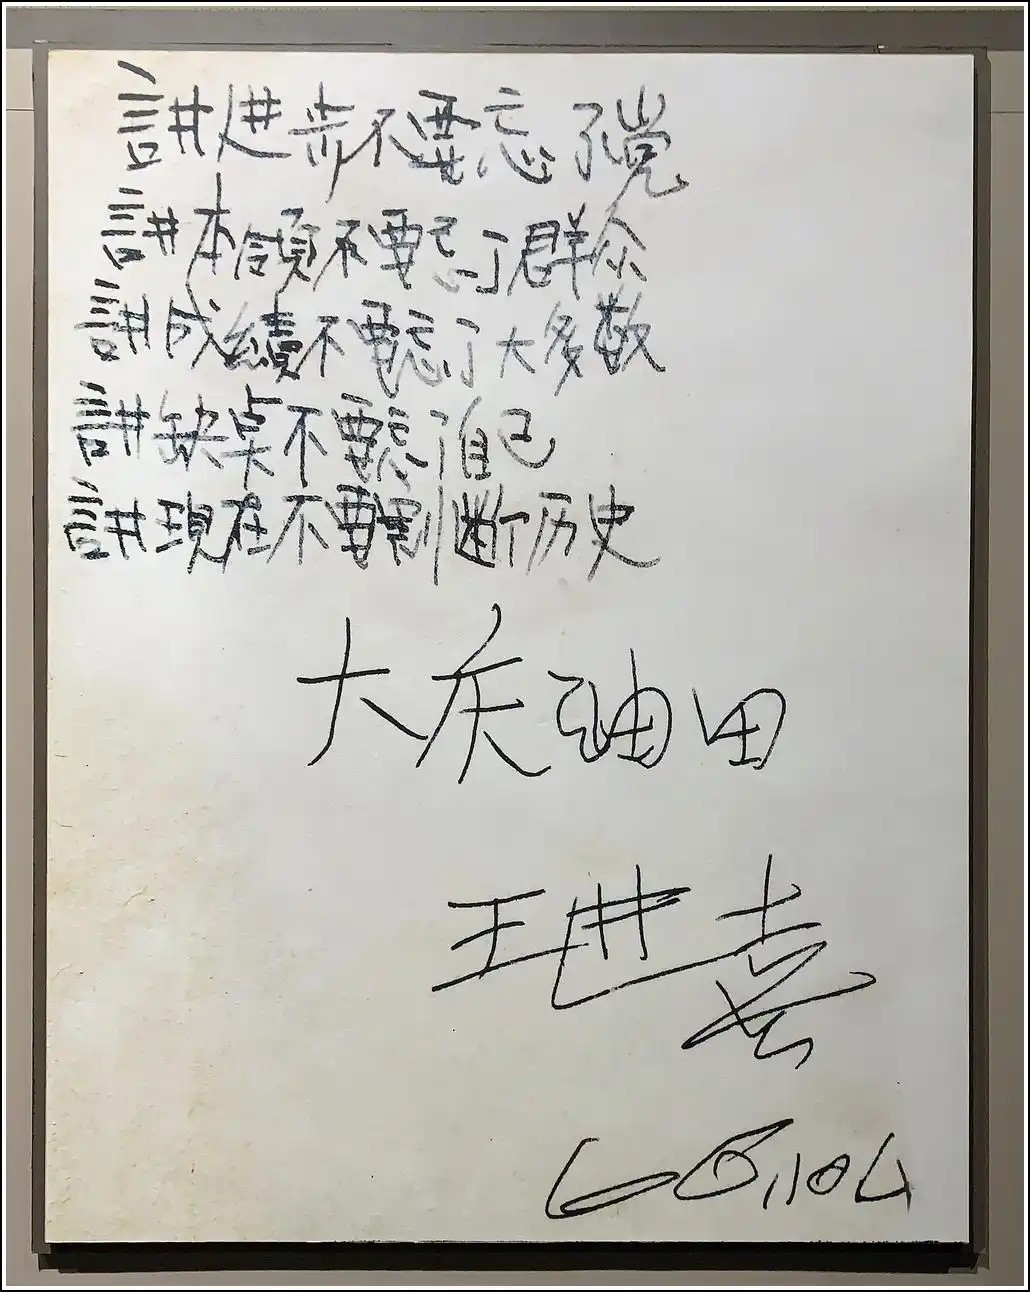 講进步不要忘了党
講本領不要忘了群众
講成績不要忘了大多数
講缺奌不要忘了自己
講現在不要割断历史
大庆油田
王进喜
66.10.4